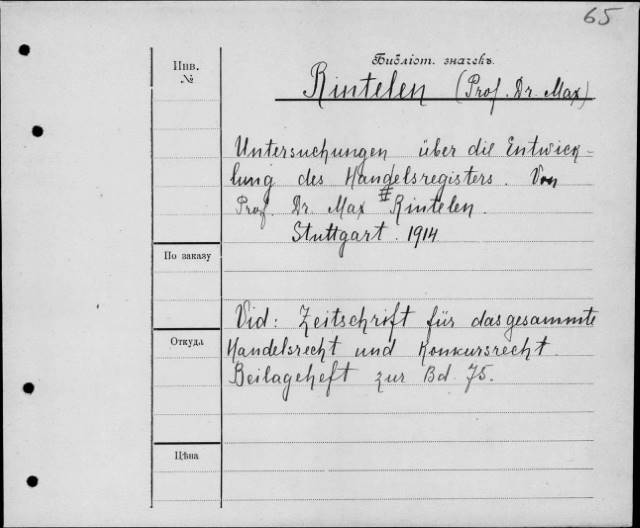 65
Библіот. значекъ.
Инв.
№
Rintelen (Prof. Dr. Max)
Untersuchungen über die Entwick-
lung des Handelsregisters. Von
Prof. Dr. Max Rintelen.
Stuttgart. 1914
По заказу
Vid: Zeitschrift für das gesammte
Откуда
Handelsrecht und Konkursrecht.
Beilageheft zur Bd. 75.
Цѣна